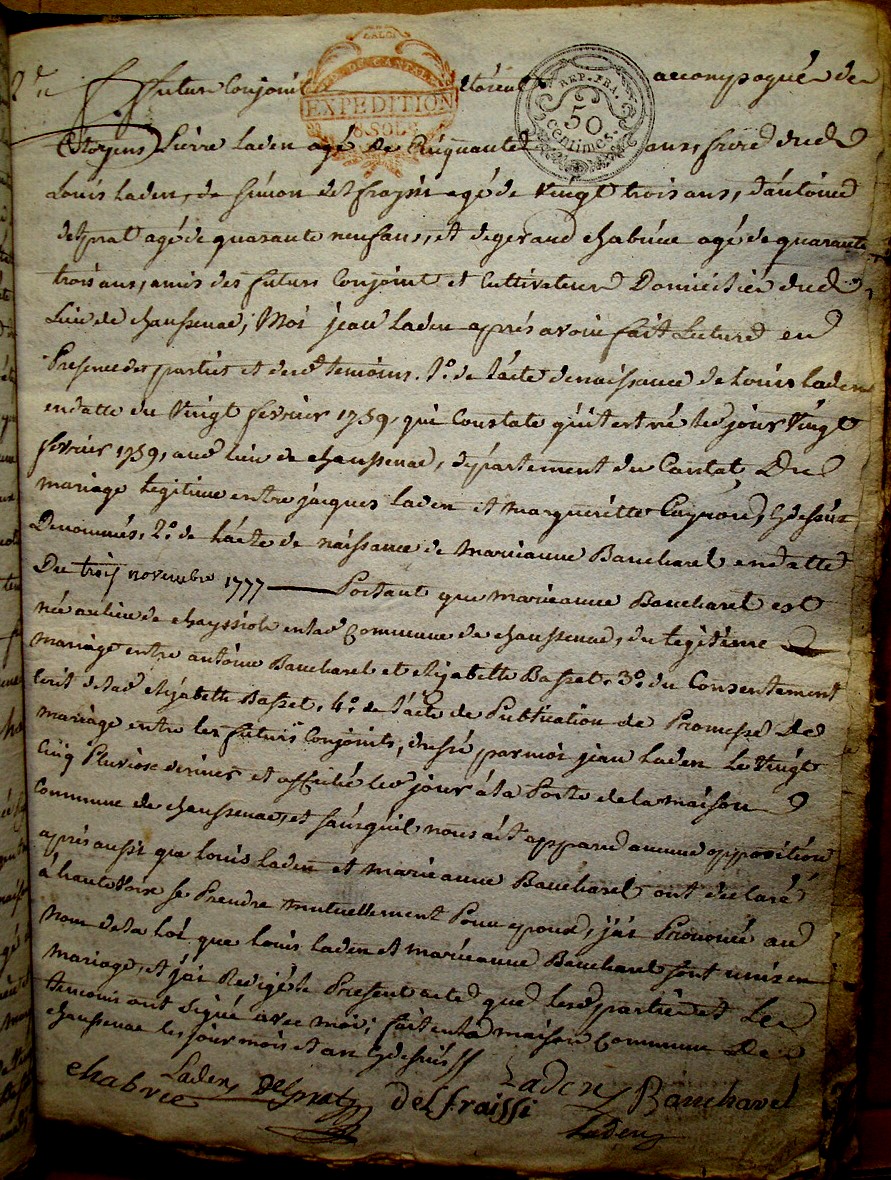 2.de
futurs Conjoints étoient accompagnés de
GALOI
DÉP. DU CANTAL
EXPEDITION
8 SOLS
REP. FRA.
50
centimes.
Citoyens Pierre Laden agé de Cinquante ans, frere dud.
Louis Laden, de Simon delfraissi agé de Vingt trois ans, d'antoine
delprat agé de quarante neuf ans, et de gerand chabrie agé de quarante
trois ans, amis des futurs Conjoint et Cultivateurs Domiciliés dud.
Lieu de chaussenac, Moi jean Laden après avoir fait Lecture en
Presence des parties et desd. temoins. 1.o de l'acte de naissance de Louis Laden
en datte du Vingt fevrier 1759, qui Constate qu'il est né led. jour Vingt
fevrier 1759, aud. lieu de chaussenac, département du Cantal, Du
mariage legitime entre jacques Laden et margueritte Cayrou, Cydessus
Denommés, 2.o de l'acte de naissance de marieanne Baucharel en datte
Du trois novembre 1777 Portant que marieanne Baucharel est
née au lieu de chayssiole en lad. Commune de chaussenac, du legitime
mariage entre antoine Baucharel et elizabette Basset. 3.o du Consentement
Ecrit de lad. elizabette Basset, 4.o de l'acte de Publication de Promesse de
mariage entre les futurs Conjoints, dressé par moi jean Laden Le Vingt
Cinq Pluviose dernier et affiché led. jour à la Porte de la maison
Commune de chaussenac, et sans qu'il nous ait apparu aucune opposition
après aussi que louis laden et marieanne Baucharel ont declaré
à haute Voix se Prendre mutuellement Pour epoux, j'ai Prononcé au
nom de la Loi que Louis laden et marieanne Baucharel sont unis en
mariage, et j'ai Redigé le Present acte que lesd. parties et Les
temoins ont signé avec moi; fait en la maison Commune De
chaussenac les jour mois et an Cydessus
chabrie Laden Delprat delfraissi Laden Baucharel
Laden